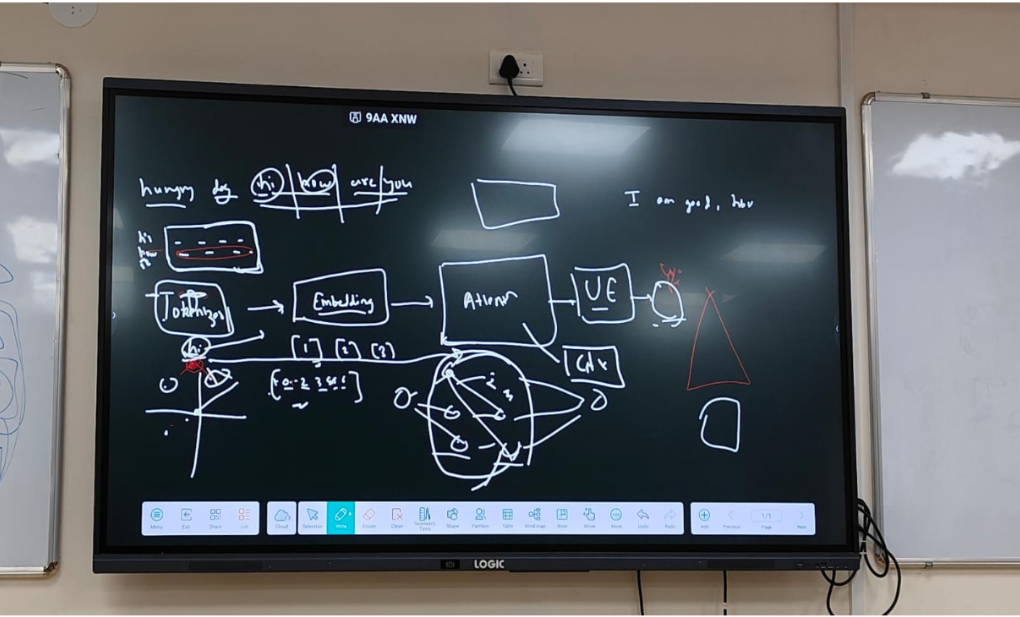 9AA XNW
hungry dog hi how are you
I am good, how
hi
how
Tokenizer
Embedding
UE
hi
[1] [2] [3]
Menu Exit Share List Cloud Selection Write Eraser Clear Geometric Tools Shape Partition Table Mind map Note Move More Undo Redo Add Previous 1/1 Page Next
LOGIC